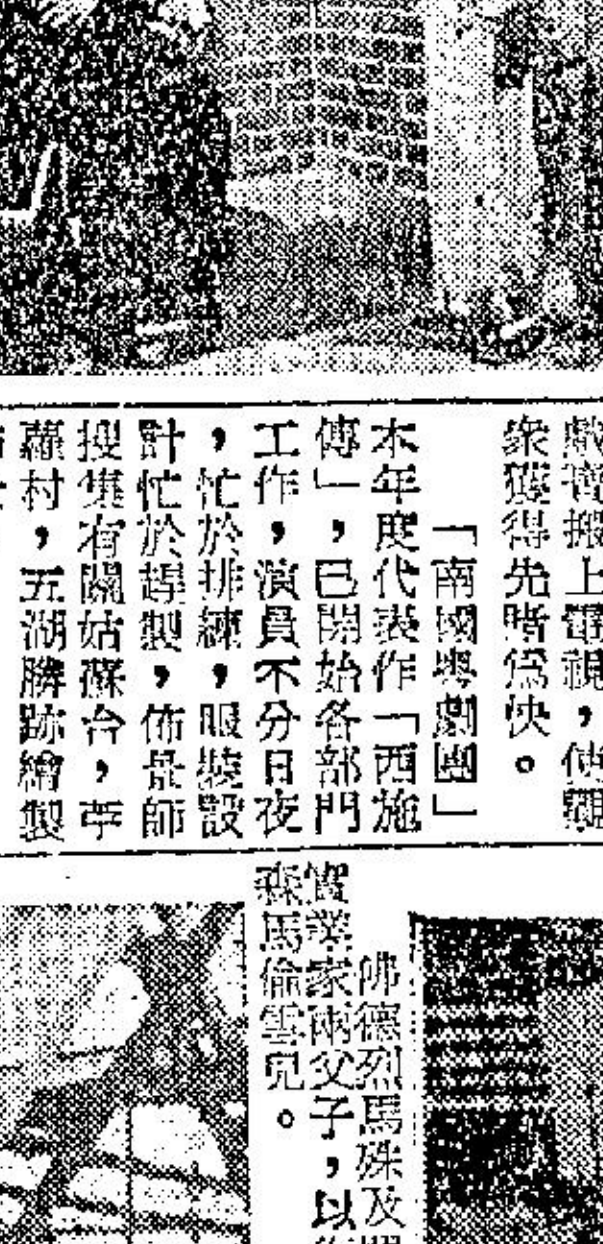 戲搬上電視，使觀
衆獲得先睹爲快。
「南國粵劇團」
本年度代表作「西施
傳」，已開始各部門
工作，演員不分日夜
，忙於排練，服裝設
計忙於趕製，佈景師
搜集有關姑蘇台，苧
蘿村，五湖勝跡繪製
佛德烈馬殊及
實業家兩父子，以
森馬倫雲兒。